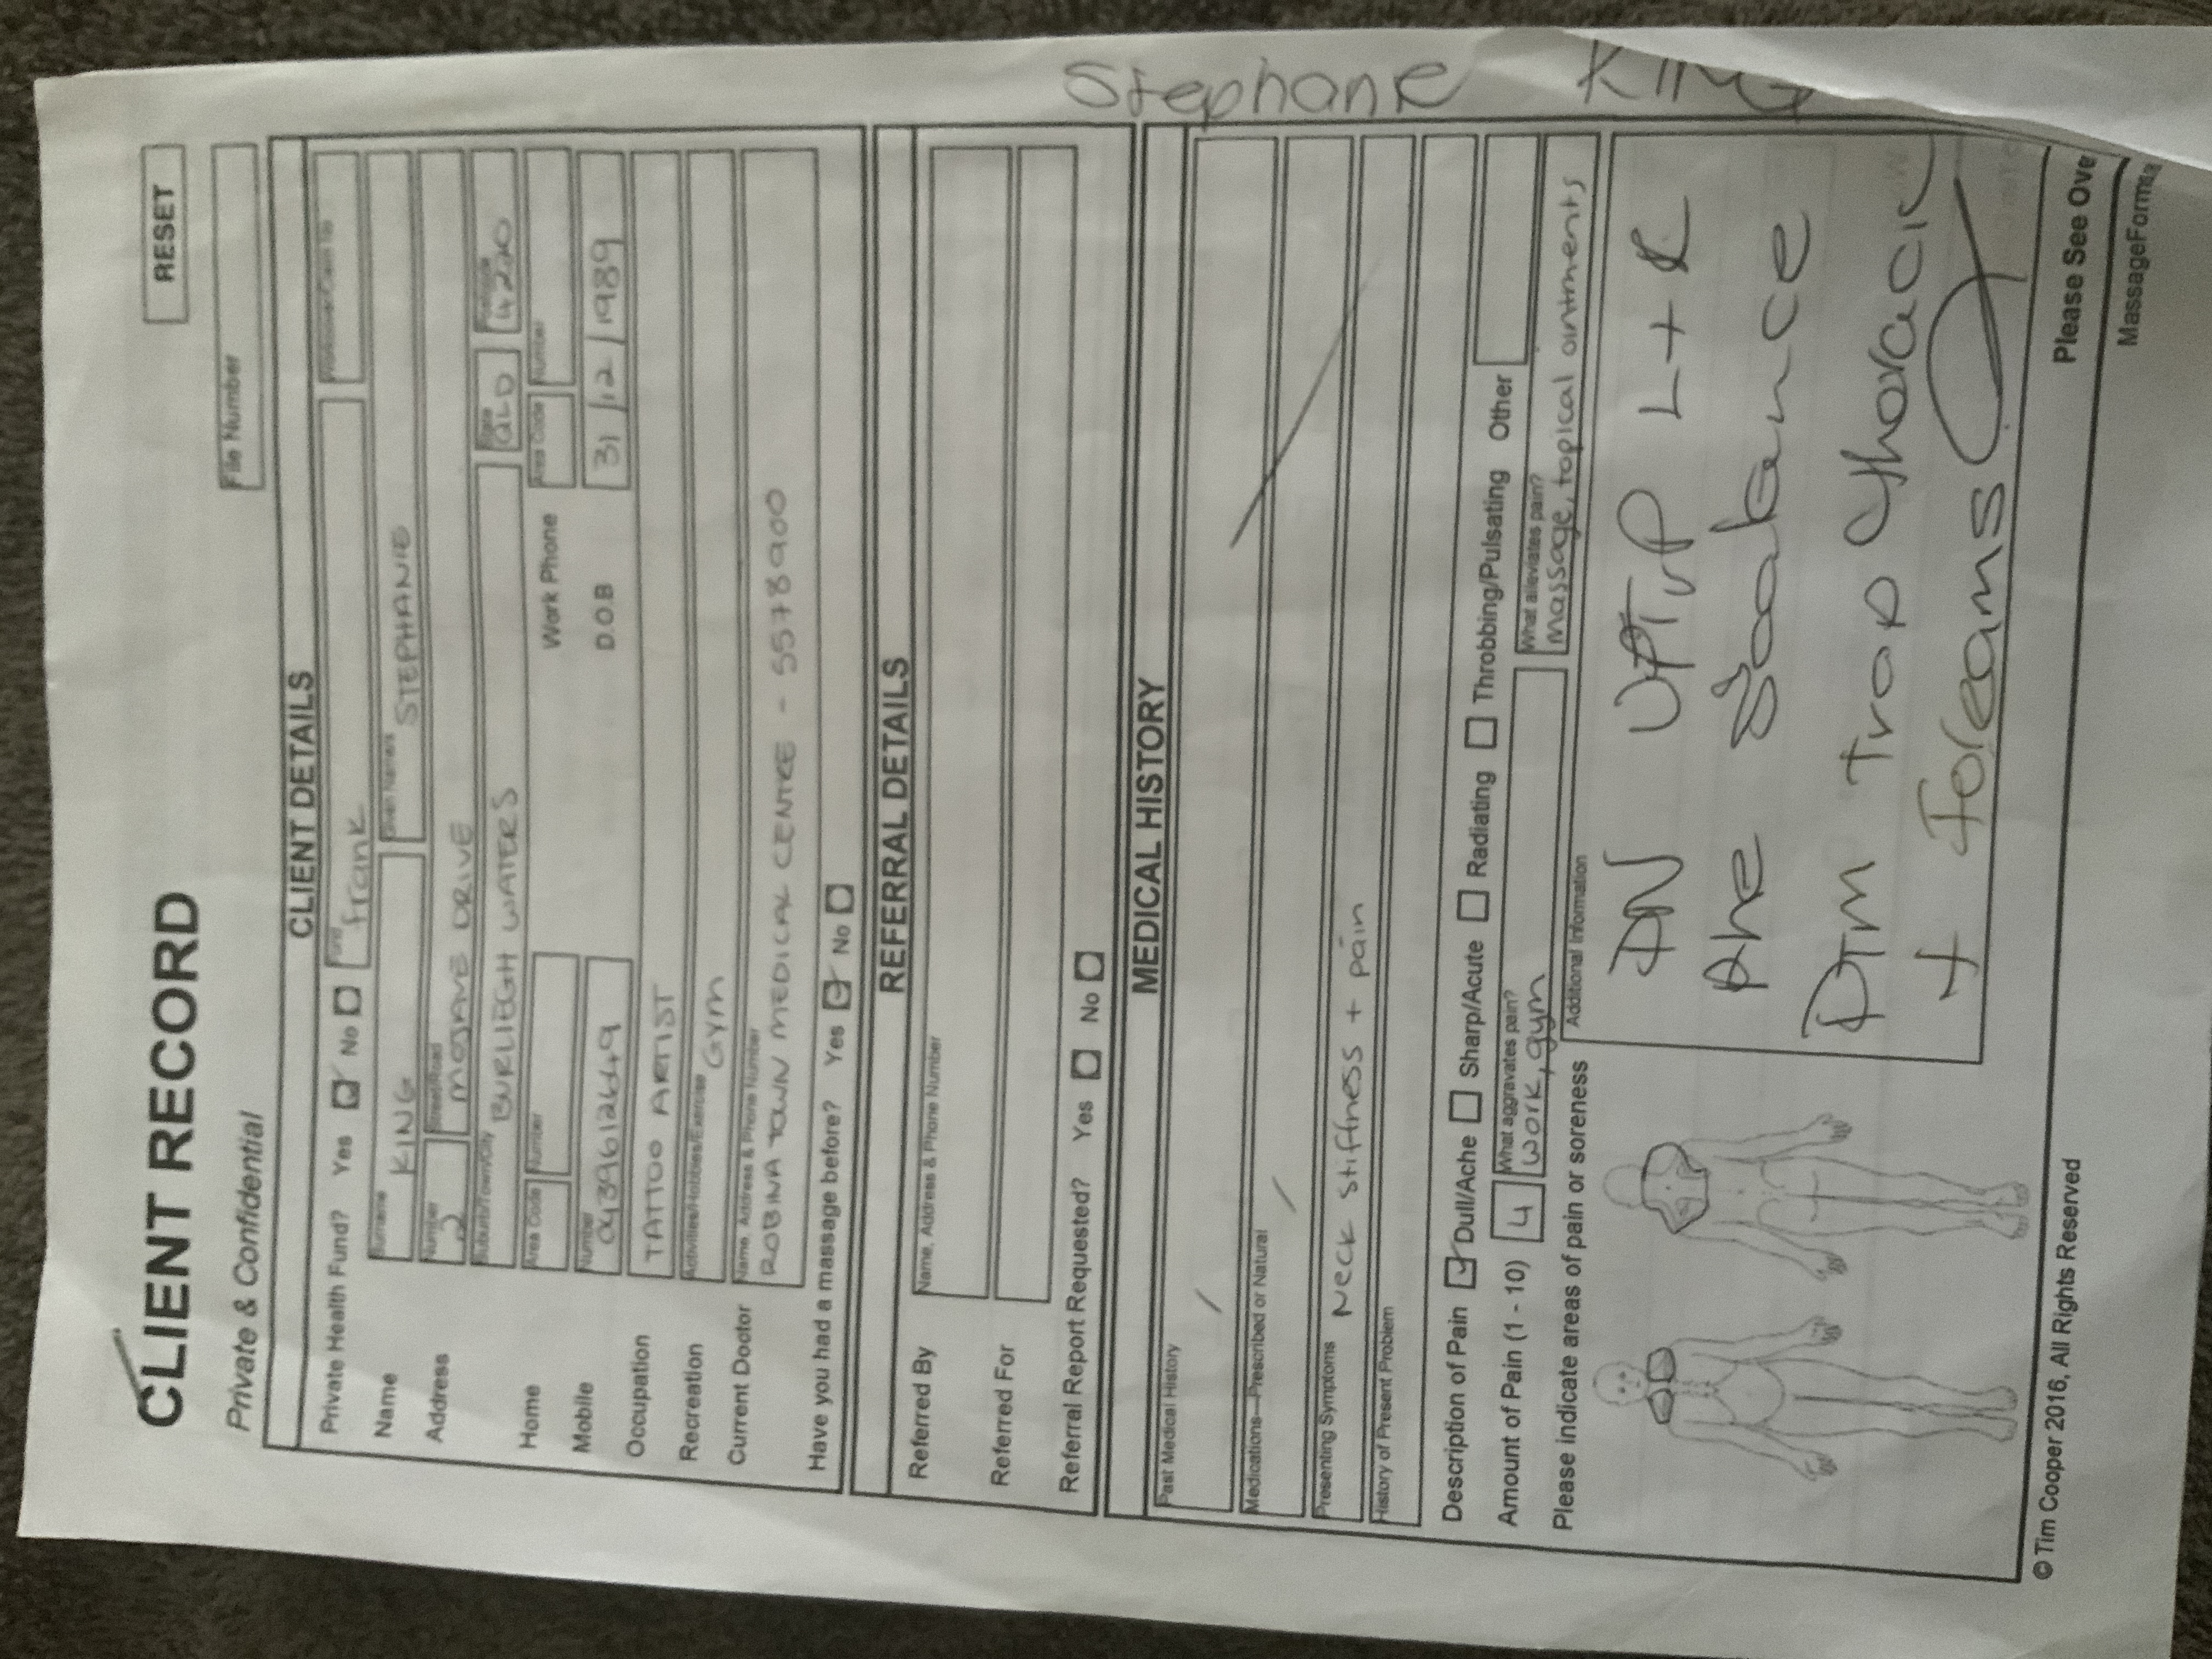 RESET
CLIENT RECORD
Private & Confidential
File Number
CLIENT DETAILS
Private Health Fund? Yes No Fund Frank
Name Surname KING Given Names STEPHANIE
Address Number 2 Street/Road MOJAVE DRIVE
Suburb/Town/City BURLIEGH WATERS State QLD Postcode 4220
Home Area Code Number Work Phone Area Code Number
Mobile Number 0439612649 D.O.B 31/12/1989
Occupation TATTOO ARTIST
Recreation Activities/Hobbies/Exercise Gym
Current Doctor Name, Address & Phone Number
ROBINA TOWN MEDICAL CENTRE - 5578900
Have you had a massage before? Yes No
REFERRAL DETAILS
Referred By Name, Address & Phone Number
Referred For
Referral Report Requested? Yes No
Stephanie KING
MEDICAL HISTORY
Past Medical History
Medications—Prescribed or Natural
Presenting Symptoms Neck stiffness + pain
History of Present Problem
Description of Pain Dull/Ache Sharp/Acute Radiating Throbbing/Pulsating Other
Amount of Pain (1 - 10) 4 What aggravates pain? work, gym What alleviates pain? massage, topical ointments
Please indicate areas of pain or soreness
Additional Information
DN L + R
Trap thoracic
+ Forearms
© Tim Cooper 2016, All Rights Reserved
Please See Ove
MassageForms